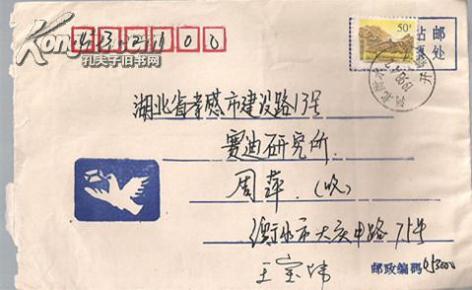 432100
50分
邮
处
湖北省孝感市建设路13号
赛迪研究所
周萍 (收)
衡水市大庆中路75号
王宝炜
邮政编码 053000
孔夫子旧书网